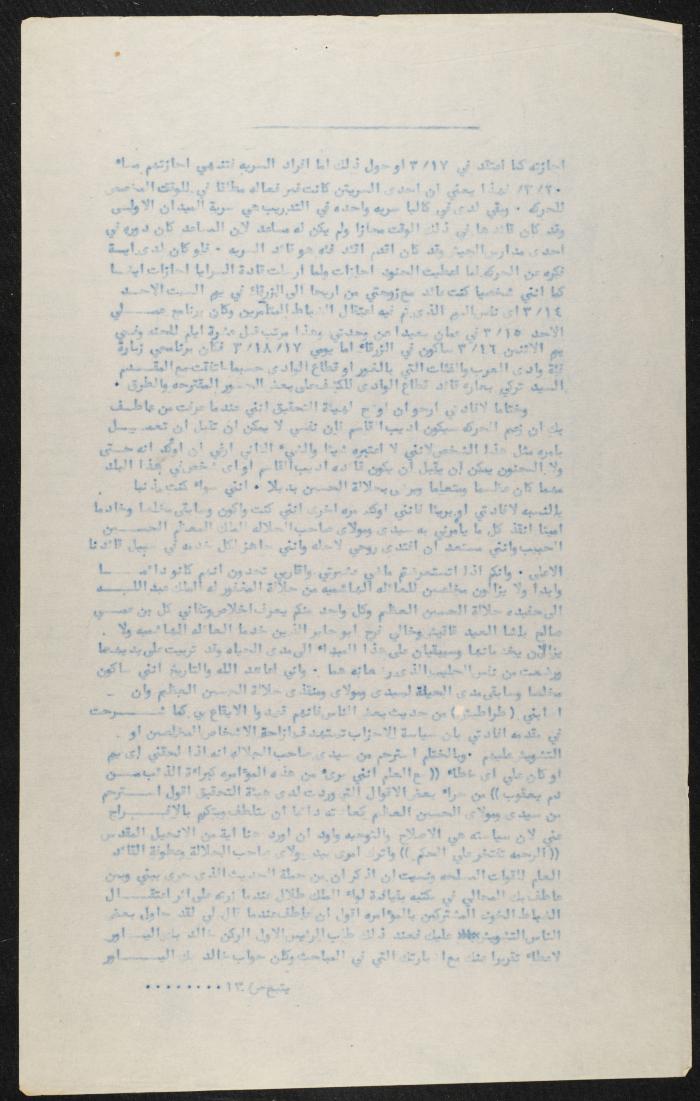 اجازته كما اعتقد في ٣/١٧ او حول ذلك اما افراد السريه فتنتهي اجازتهم مساء
٣/٢٠ ، لهذا يعني ان احدى السريتين كانت غير فعاله مطلقا في الوقت
للحركه ٠ وبقي لدى في كالبا سريه واحده في التدريب هي سرية الميدان الاولى
وقد كان قائدها في ذلك الوقت مجازا ولم يكن له مساعد لان المساعد كان دوره في
احدى مدارس الجيش وقد كان اقدم قائد فئه هو قائد السريه ٠ فلو كان لدى اية
فكره عن الحركه لما اعطيت الجنود اجازات ولما ارسلت قادة السرايا اجازات ايضا
كما انني شخصيا كنت عائد مع زوجتي من اريحا الى الزرقاء في يوم السبت الاحد
٣/١٤ اى نفس اليوم الذى تم فيه اعتقال الضباط المتآمرين وكان برنامج عملي
الاحد ٣/١٥ في عمان بعيدا عن وحدتي وهذا مرتب قبل عشرة ايام للجنه وفي
يوم الاثنين ٣/١٦ ساكون في الزرقاء اما يومي ٣/١٨/١٧ فكان برنامجي زيارة
فئة وادى العرب والفئات التي بالغور او قطاع الوادى حسبما اتفقت مع المقدم
السيد تركي بحاره قائد قطاع الوادى للكشف على بعض الجسور المقترحه والطرق ٠
وختاما لافادتي ارجو ان اوضح لهيئة التحقيق انني عندما عرفت من عاطف
بك ان زعيم الحركه سيكون اديب ابا قاسم فان نفسي لا يمكن ان تقبل ان تعمل
بامره مثل هذا الشخص لانني لا اعتبره شيئا والشيء الثاني ارى ان اوكد انه حتى
ولا المجنون يمكن ان يقبل ان يكون قائده اديب القاسم او اى شخص في هذا البلد
مهما كان عظيما ومتعلما ويرضى بجلالة الحسين بديلا ٠ انني سواء كنت مذنبا
بالنسبه لافادتي او بريئا فانني اوكد مره اخرى انني كنت واكون وسابقى مخلصا وخادما
امينا انفذ كل ما يأمرني به سيدى ومولاى صاحب الجلاله الملك المعظم الحسين
الحبيب وانني مستعد ان افتدى روحي لاجله وانني جاهز لكل خدمه في سبيل قائدنا
الاعلى ٠ وانكم اذا استعرضتم ماضي عشيرتي واقاربي تجدون انهم كانو دائما
وابدا ولا يزالون مخلصين للعائله الهاشميه من جلالة المغفور له الملك عبد الله
الى حفيده جلالة الحسين العظيم وكل واحد منكم يعرف اخلاص وتفاني كل من عمي
صالح باشا العيد وخالي فرح ابو جابر الذين خدما العائله الهاشميه ولا
يزالان يخدمانها وسيبقيان على هذا المبداء الى مدى الحياه وقد تربيت على يديهما
ورضعت من نفس الحليب الذى رضعانه هما ٠ واني اعاهد الله والتاريخ انني ساكون
مخلصا وسابقى مدى الحياة لسيدى ومولاى ومنقذى جلالة الحسين المعظم وان
اصابتني ( طراطيش ) من حديث بعض الناس فانهم قصدوا الايقاع بي كما شرحت
في مقدمه افادتي بان سياسة الاحزاب تستهدف ازاحة الاشخاص المخلصين او
التشويش عليهم ٠ وبالختام استرحم من سيدى صاحب الجلاله انه اذا لحقني اى يم
او كان علي اى خطاء (( مع العلم انني برىء من هذه المؤامره كبراءة الذئب من
دم يعقوب )) من جراء بعض الاقوال التي وردت لدى هيئة التحقيق اقول استرحم
من سيدى ومولاى الحسين المعظم كعادته دائما ان يتلطف ويتكرم بالافراج
عني لان سياسته هي الاصلاح والتوجيه واود ان اورد هنا اية من الانجيل المقدس
(( الرحمه تفتخر على الحكم )) واترك امرى بيد مولاى صاحب الجلالة وعطوفة القائد
العام للقوات المسلحه ونسيت ان اذكر ان من جملة الحديث الذى جرى بيني وبين
عاطف بك المجالي في مكتبه بقيادة لواء الملك طلال عندما زرته على اثر اعتقال
الضباط الخون المشتركين بالمؤامره اقول ان عاطف عندما قال لي لقد حاول بعض
الناس التشويش عليك فعند ذلك طلب الرئيس الاول الركن خالد بك الياور
لاعطاء تقريرا عنك مع اشارتك التي في المباحث وكان جواب خالد بك الياور
يتبع ص/ ١٣ ٠٠٠٠٠٠٠٠